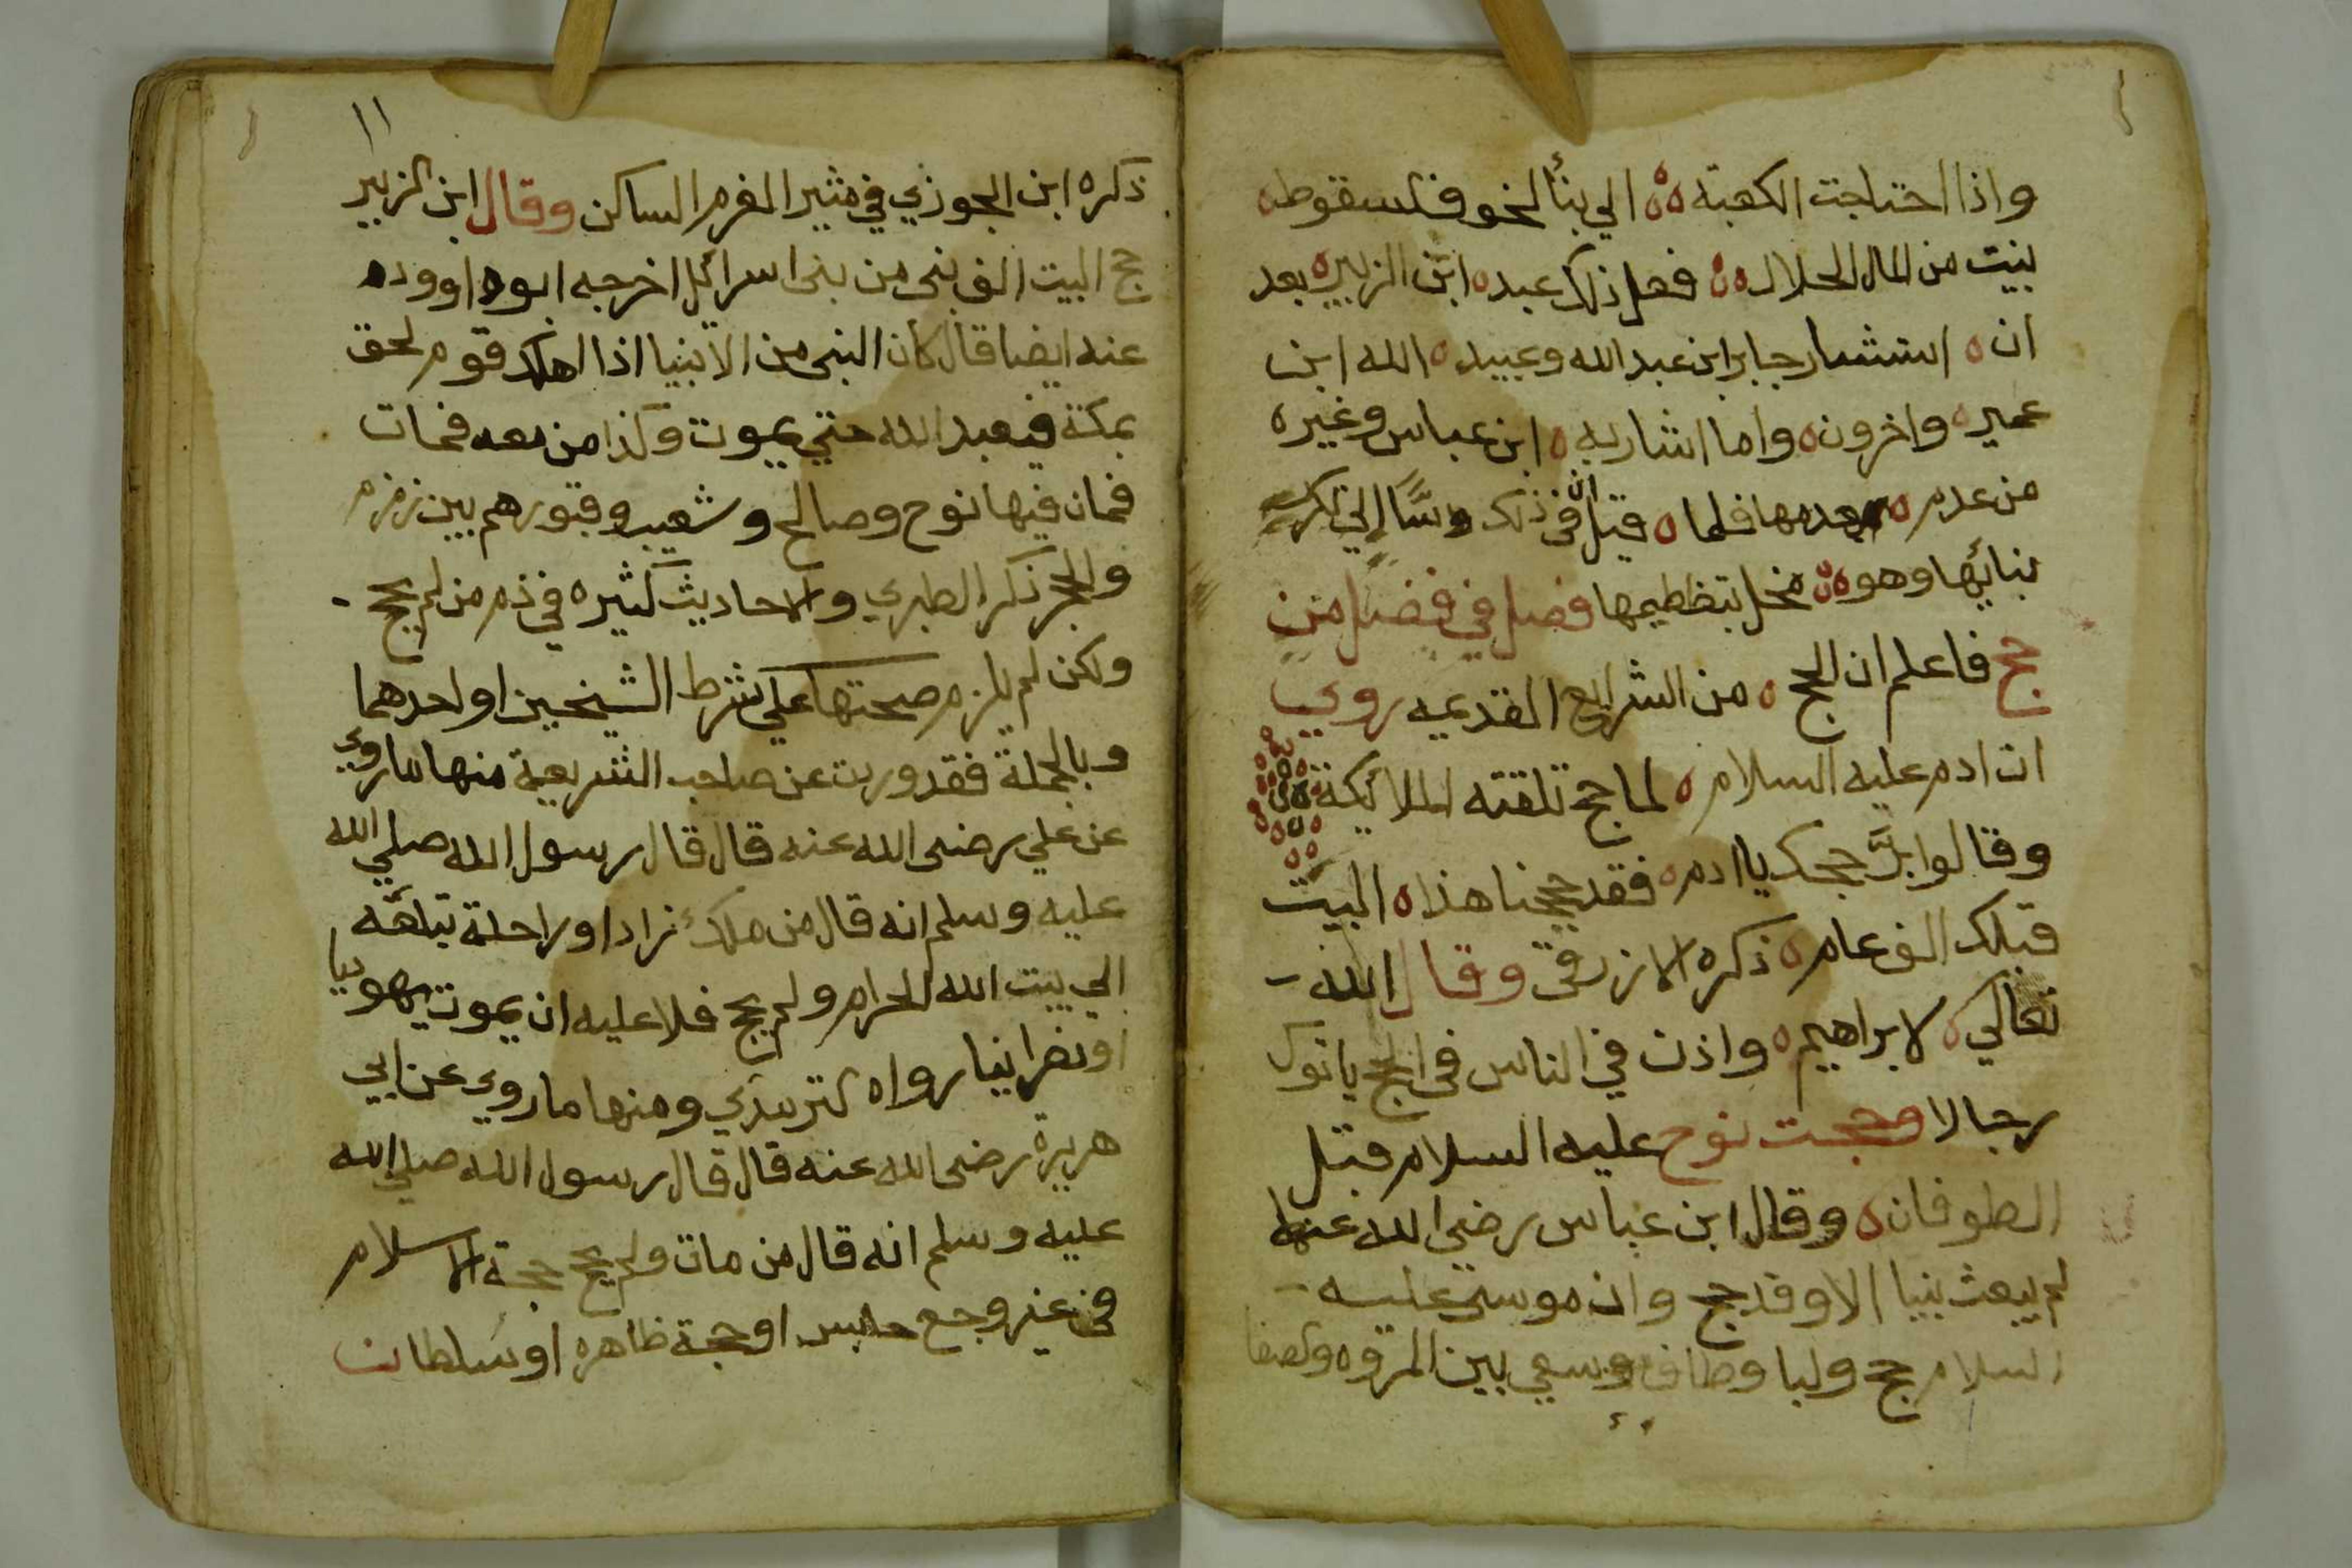 واذا احتاجت الكعبة ه ه الي بنأ لخوف سقوط ه
بنيت من المال الحلال ه ه ففعل ذلك عبد ه ابن الزبير ه بعد
ان ه استشار جابر ابن عبد الله وعبيد ه الله ابن
عمير ه واخرون ه واما اشار به ه ابن عباس وغيره
من عدم ه فلما ه قيل ان في ذلك
بنائها وهو ه مخل بتظطيمها فصل في فضل من
حج فاعلم ان الحج ه من الشرايع القديمه روي
ان ادم عليه السلام ه لما حج تلقته الملائكة
وقالوا برَّ حجك يا ادم ه فقد حججنا هذا ه البيت
قبلك الف عام ه ذكره الازرقي وقال الله
تعالي ه لابراهيم ه واذن في الناس في الحج ياتوك
رجالا وحجت نوح عليه السلام قبل
الطوفان ه وقال ابن عباس رضي الله عنهما
لم يبعث نبيا الا وقد حج وان موسى عليه
السلام حج ولبا وطاف وسعي بين المروه والصفا
١١
ذكره ابن الجوزي في مثير الغرم الساكن وقال ابن الزبير
حج البيت الف نبي من بني اسرائيل اخرجه ابوداوود ه
عنه ايضا قال كان النبي من الانبيا اذا اهلك قوم لحق
بمكة فيعبد الله حتي يموت وكذا من معه فمات
فمان فيها نوح وصالح وشعيب وقبورهم بين زمزم
والحجر ذكر الطبري والاحاديث كثيره في ذم من لم يحج
ولكن لم يلزم صحتها علي شرط الشيخين او احدهما
وبالجملة فقد وريت عن صاحب الشريعة منها ماروي
عن علي رضى الله عنه قال قال رسول الله صلي الله
عليه وسلم انه قال من ملك زادا وراحلة تبلغه
الي بيت الله الحرام ولم يحج فلا عليه ان يموت يهوديا
او نصرانيا رواه الترمذي ومنها ماروي عن ابي
هريرة رضى الله عنه قال قال رسول الله صلي الله
عليه وسلم انه قال من مات ولم يحج حجة الاسلام
في غير وجع حابس او حجة ظاهره او سلطان